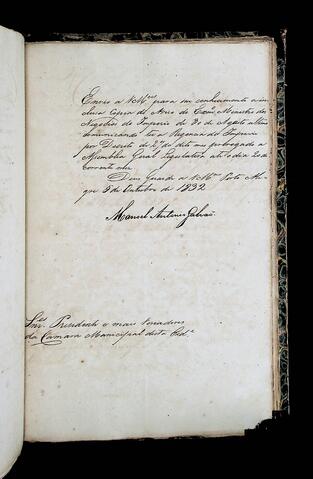 Envio a VM.ces para seu conhecimento a in-
clusa Copia do Aviso do Exm.o Ministro dos
Negocios do Imperio de 30 de Agosto ultimo
communicando ter a Regencia do Imperio
por Decreto de 29 do dito mez prorogado a
Assembléa Geral Legislativa até o dia 20 do
corrente mez
Deos Guarde a VM.ces Porto Ale-
gre 9 de Outubro de 1832
Manoel Antonio Galvão
Snr.es Presidente e mais Vereadores
da Camara Municipal desta Cid.e